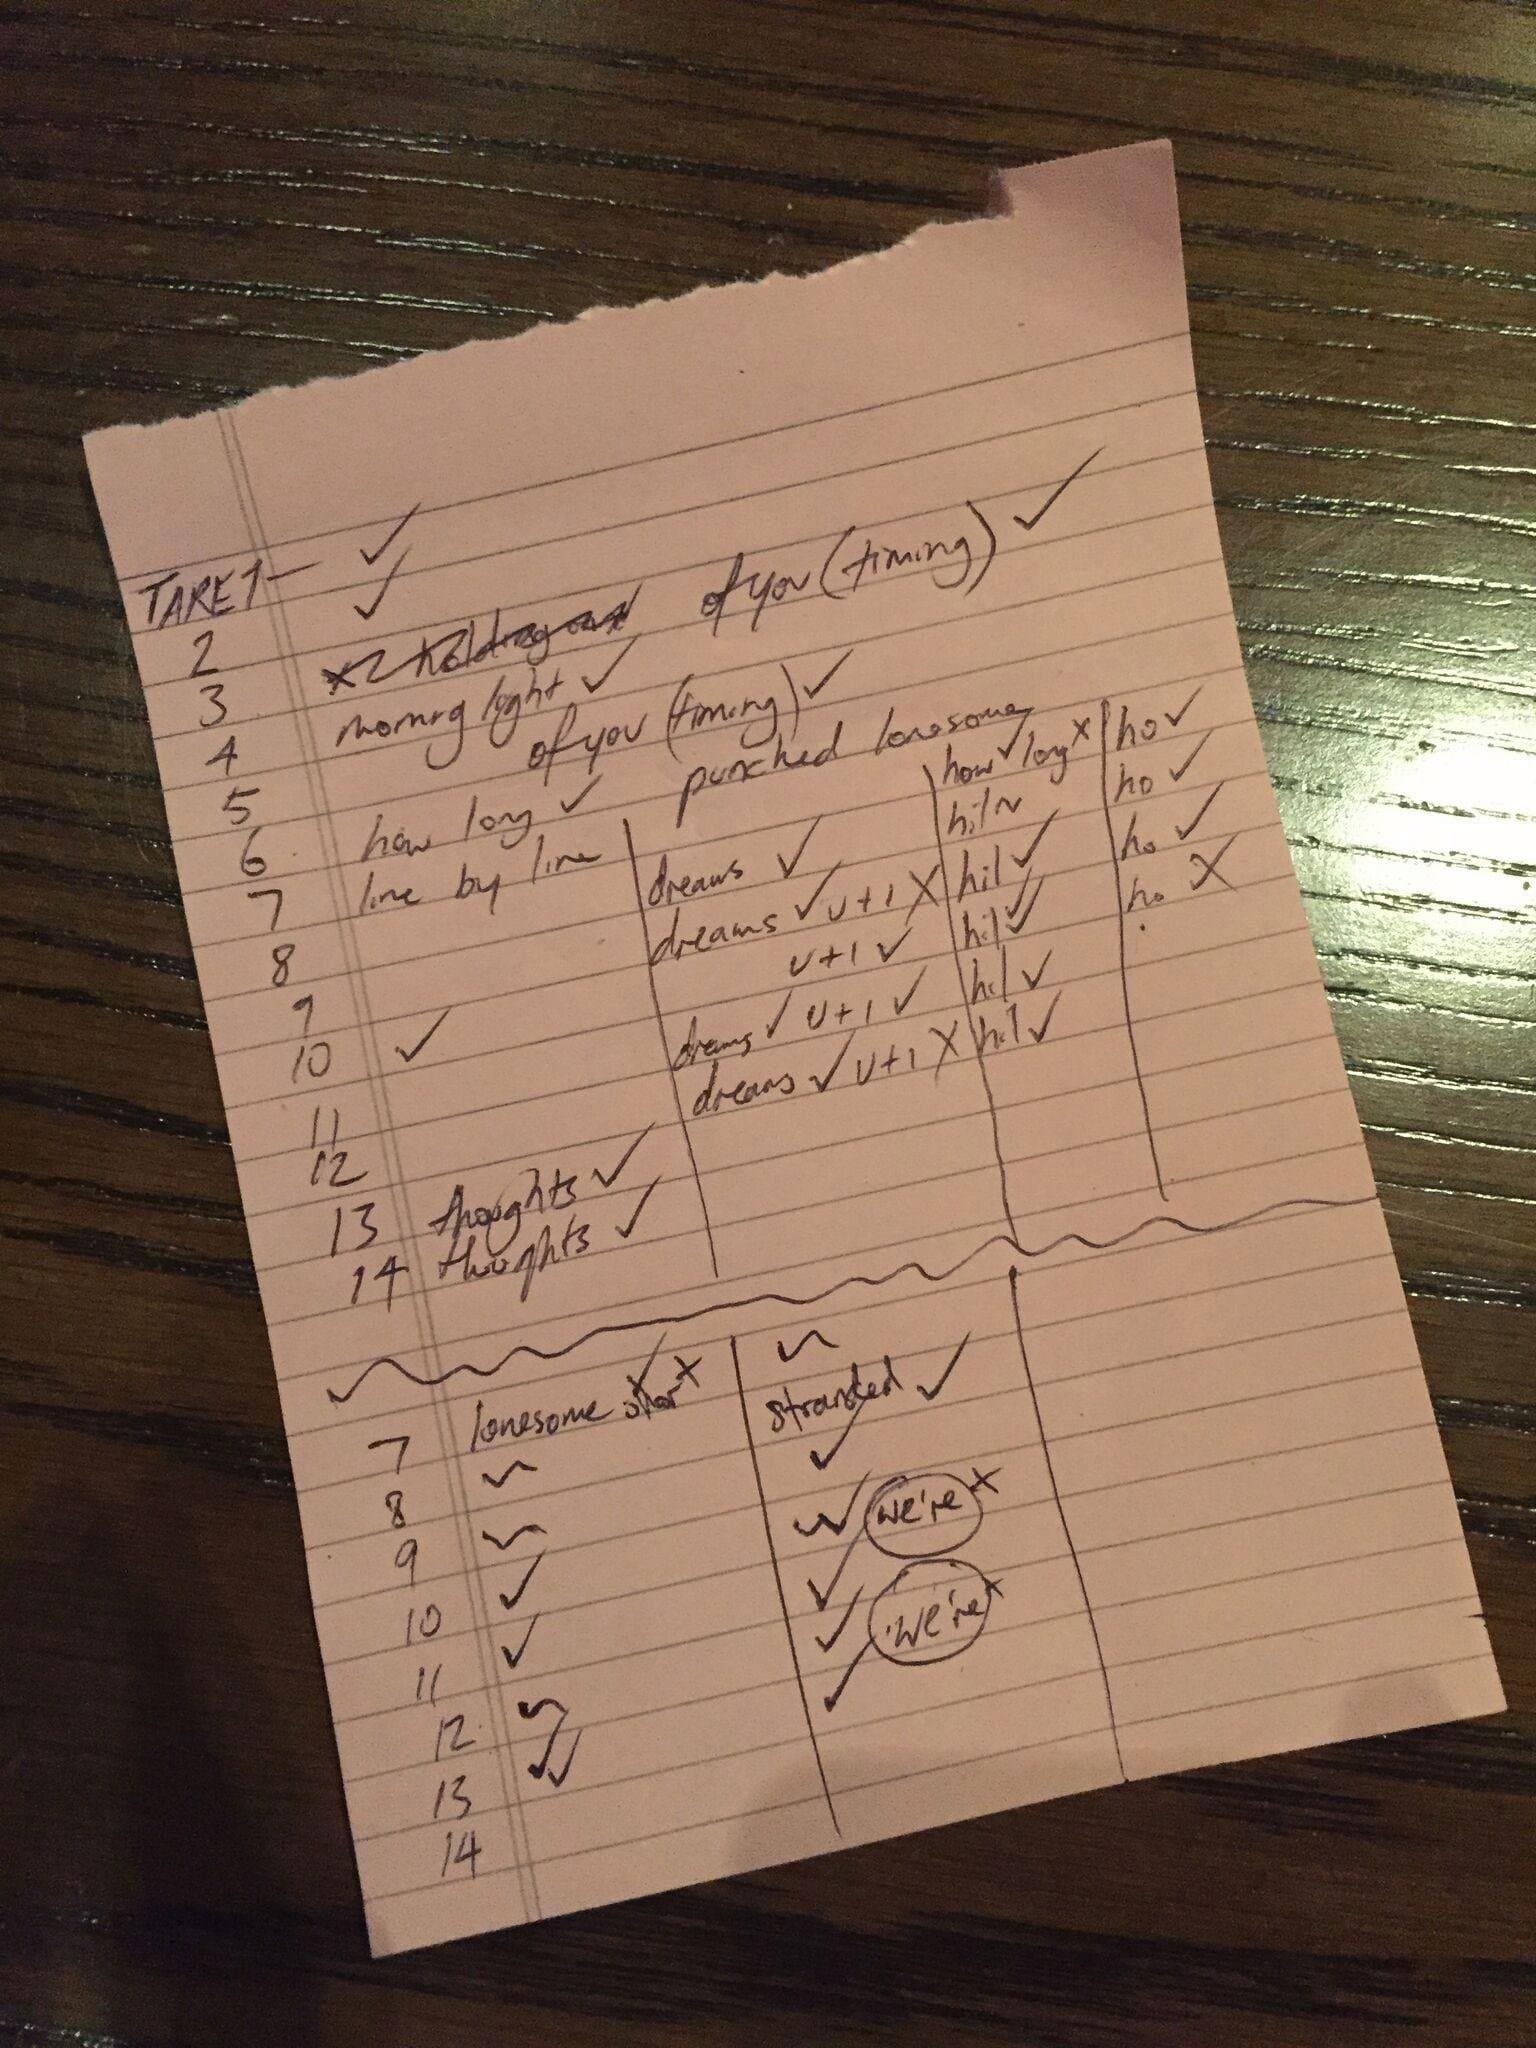 TAKE 1 — ✓
2 ✓
3 of you (timing) ✓
4 morning light ✓
5 of you (timing) ✓
6 how long ✓ punched lonesome
7 line by line dreams ✓ how ✓ long x ho ✓
8 dreams ✓ v+1 X hil ~ ho ✓
9 v+1 ✓ hil ✓ ho ✓
10 ✓ dreams ✓ v+1 ✓ hil ✓ ho X
11 dreams ✓ v+1 X hil ✓
12 hil ✓
13 thoughts ✓
14 thoughts ✓
7 lonesome x ~
8 ~ stranded ✓
9 ~ ✓
10 ✓ ~✓ we're x
11 ✓ ✓
12 ~ ✓ we're x
13 ✓✓ ✓
14